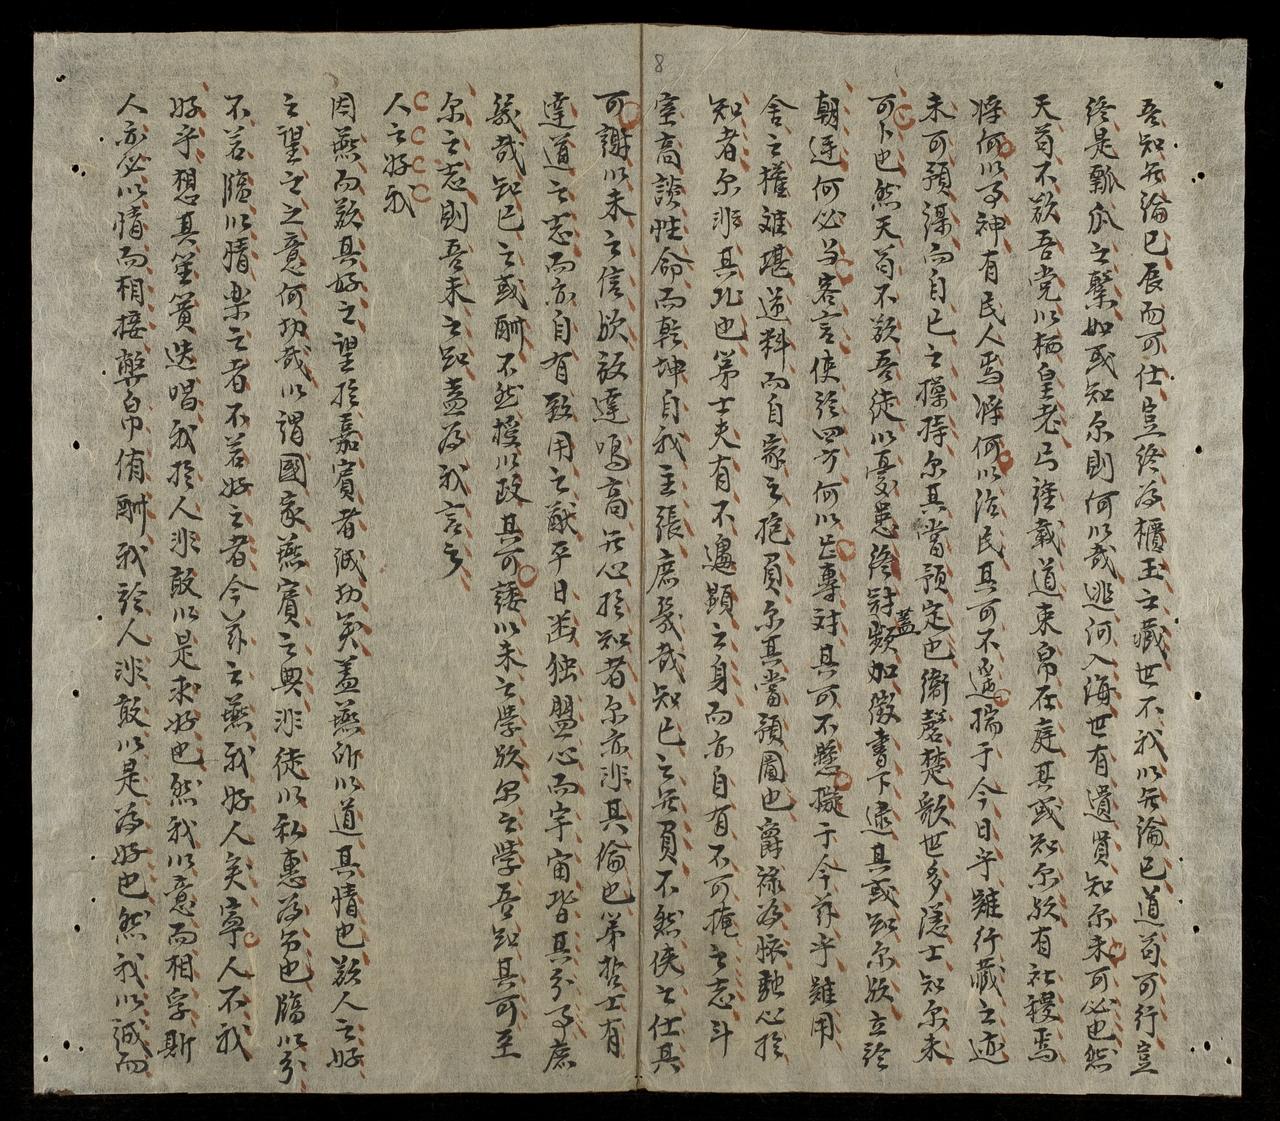 吾知長淪已展而可仕豈終為櫃玉之藏世不我以長淪已道苟可行豈
終是瓢瓜之繫如或知尔則何以哉逃河入海世有遺賢知尔未可必也然
天苟不欲吾党以栖皇老马蹄載道束帛在庭其或知尔欤有社稷焉
将何以事神有民人焉将何以治民其可不逆揣于今日乎雖行藏之迹
未可預謀而自已之操持尔其當預定也衛磬楚歌世多隱士知尔未
可卜也然天苟不欲吾徒以憂患終蒭蓋頻加徵書下逮其或知尔欤立於
朝廷何必与客言使於四方何以出專対其可不懸擬于今茲乎雖用
舍之權难堪逆料而自家之抱負尔其當預圖也爵祿為懷馳心於
知者尔非其比也第士夫有不遇顯之身而亦自有不可掩之志斗
室高談性命而乾坤自我主張庶幾哉知已之長負不然使之仕其
可謝以未之信欤放達鳴高无心於知者尔亦非其倫也第哲士有
達道之志而亦自有致用之猷平日幽独盟心而宇宙皆其分事庶
幾哉知已之或酬不然授以政其可諉以未之学欤尔之学吾知其可至
尔之志則吾未之知盍為我言之
人之好我
因燕而歎其好之望於嘉賓者誠切矣蓋燕所以道其情也歎人之好
之望之之意何切哉以謂國家燕賓之典非徒以私惠為名也臨以分
不若臨以情楽之者不若好之者今茲之燕我好人矣寧人不我
好乎想其笙簧迭唱我於人非敢以是求好也然我以意而相孚斯
人亦必以情而相接幣帛侑酬我於人非敢以是為好也然我以誠而